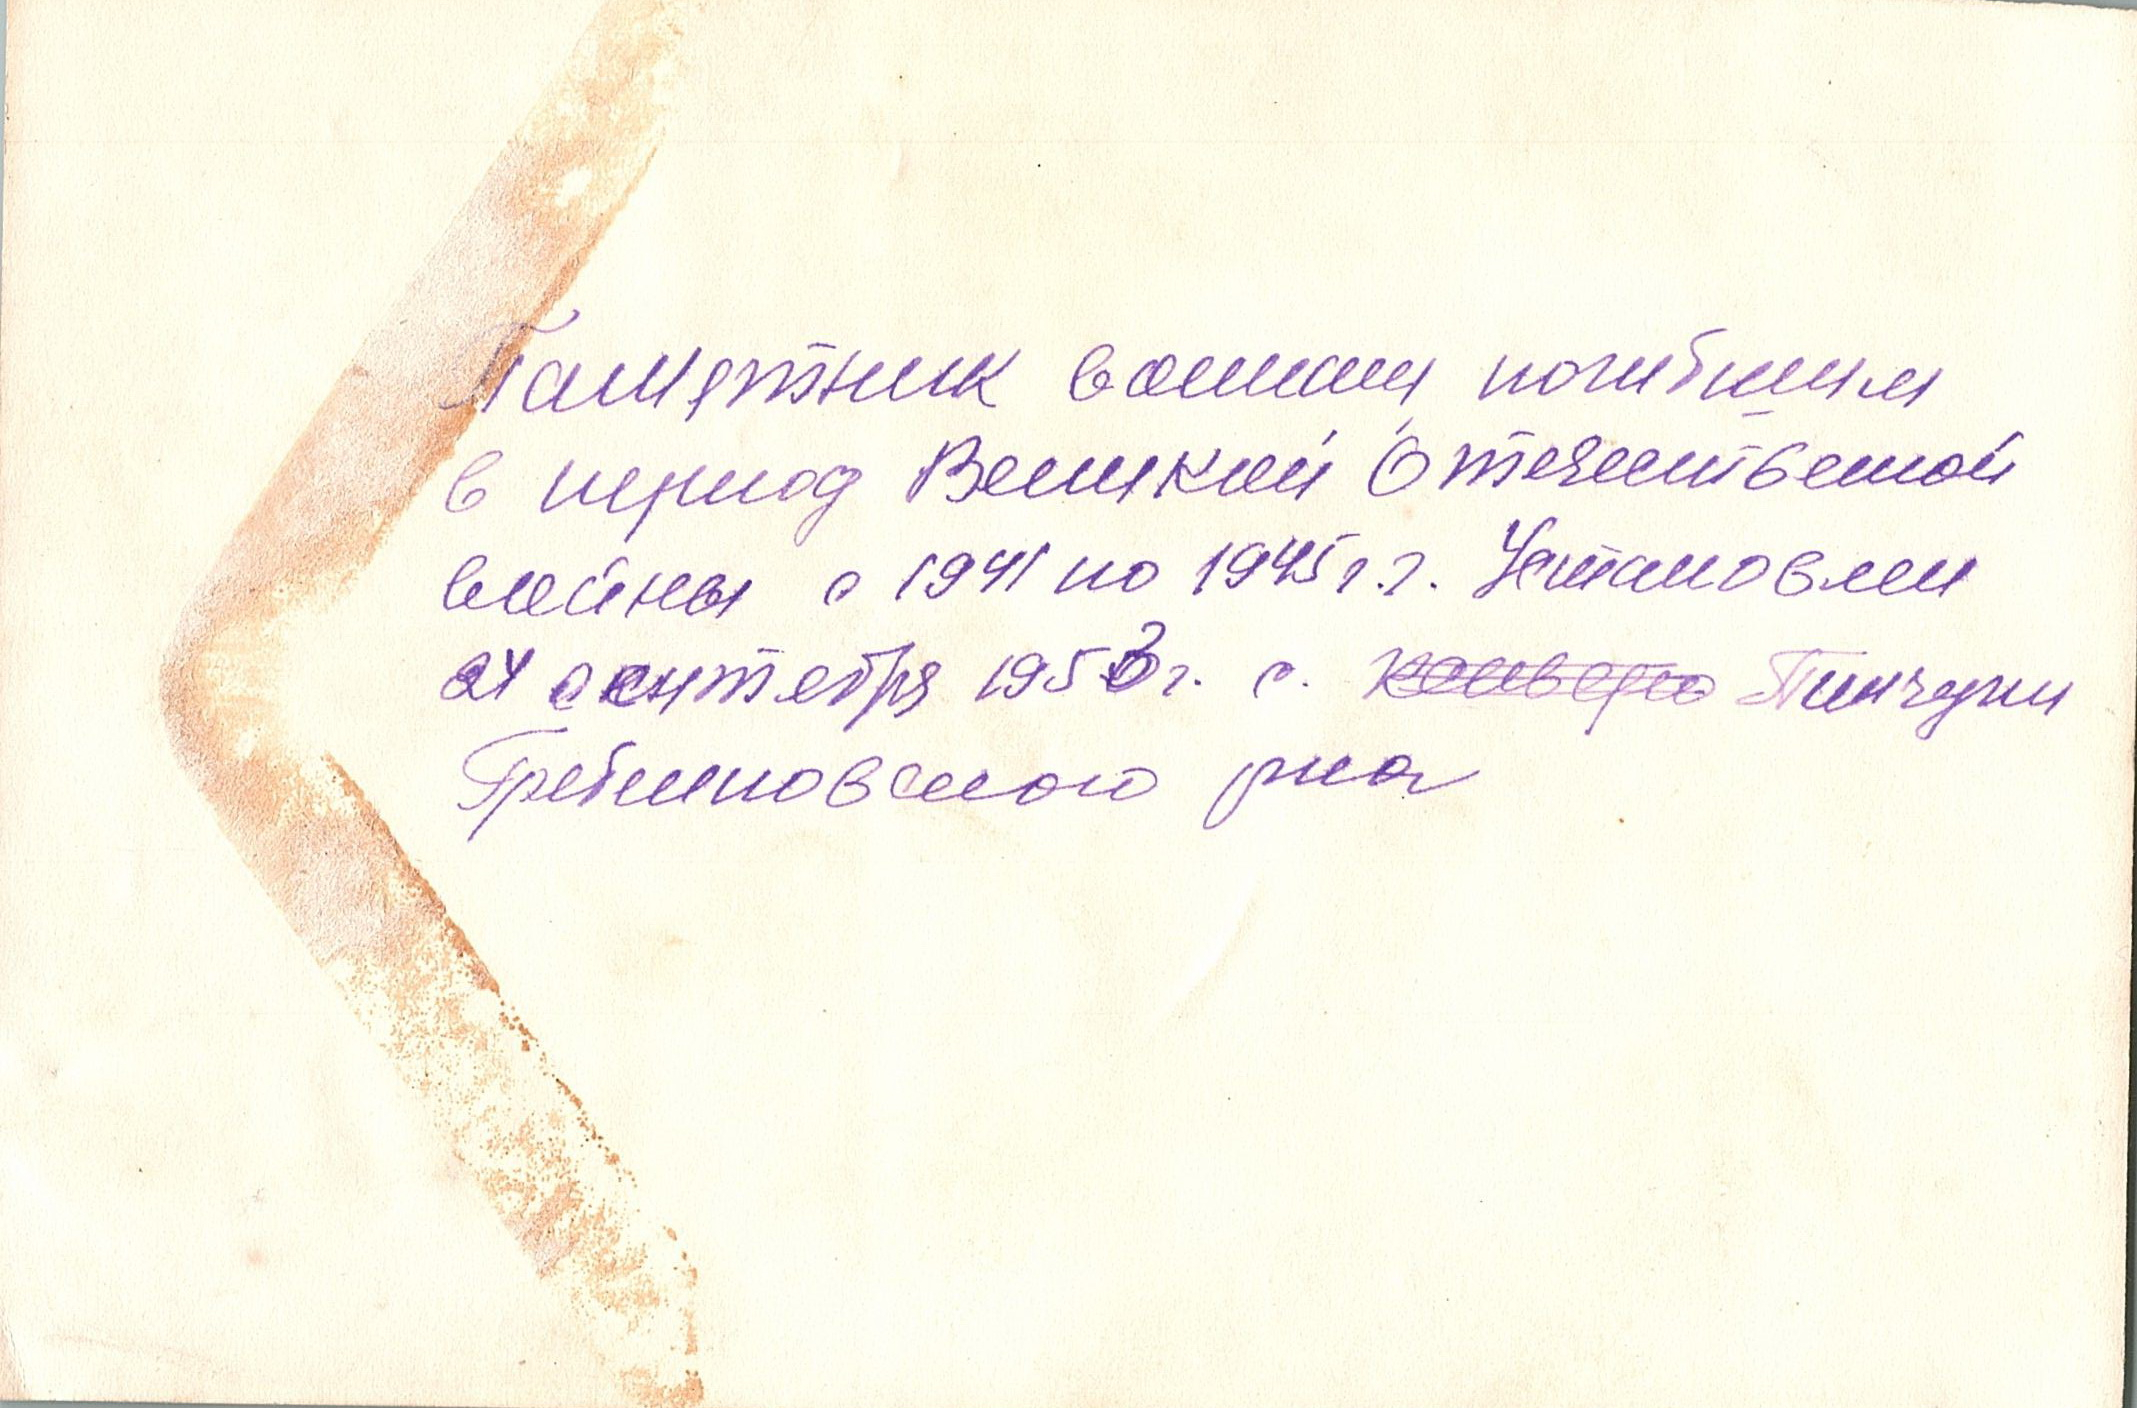 Памятник воинам погибшим
в период Великой Отечественой
войны с 1941 по 1945 г.г. Установлен
21 сентября 1953 г. с. Пинчуки
Гребенковского р-на